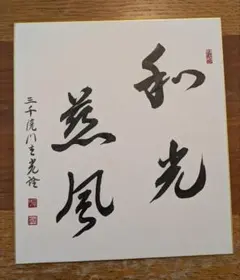 和光
慈風
三千院門主光詮